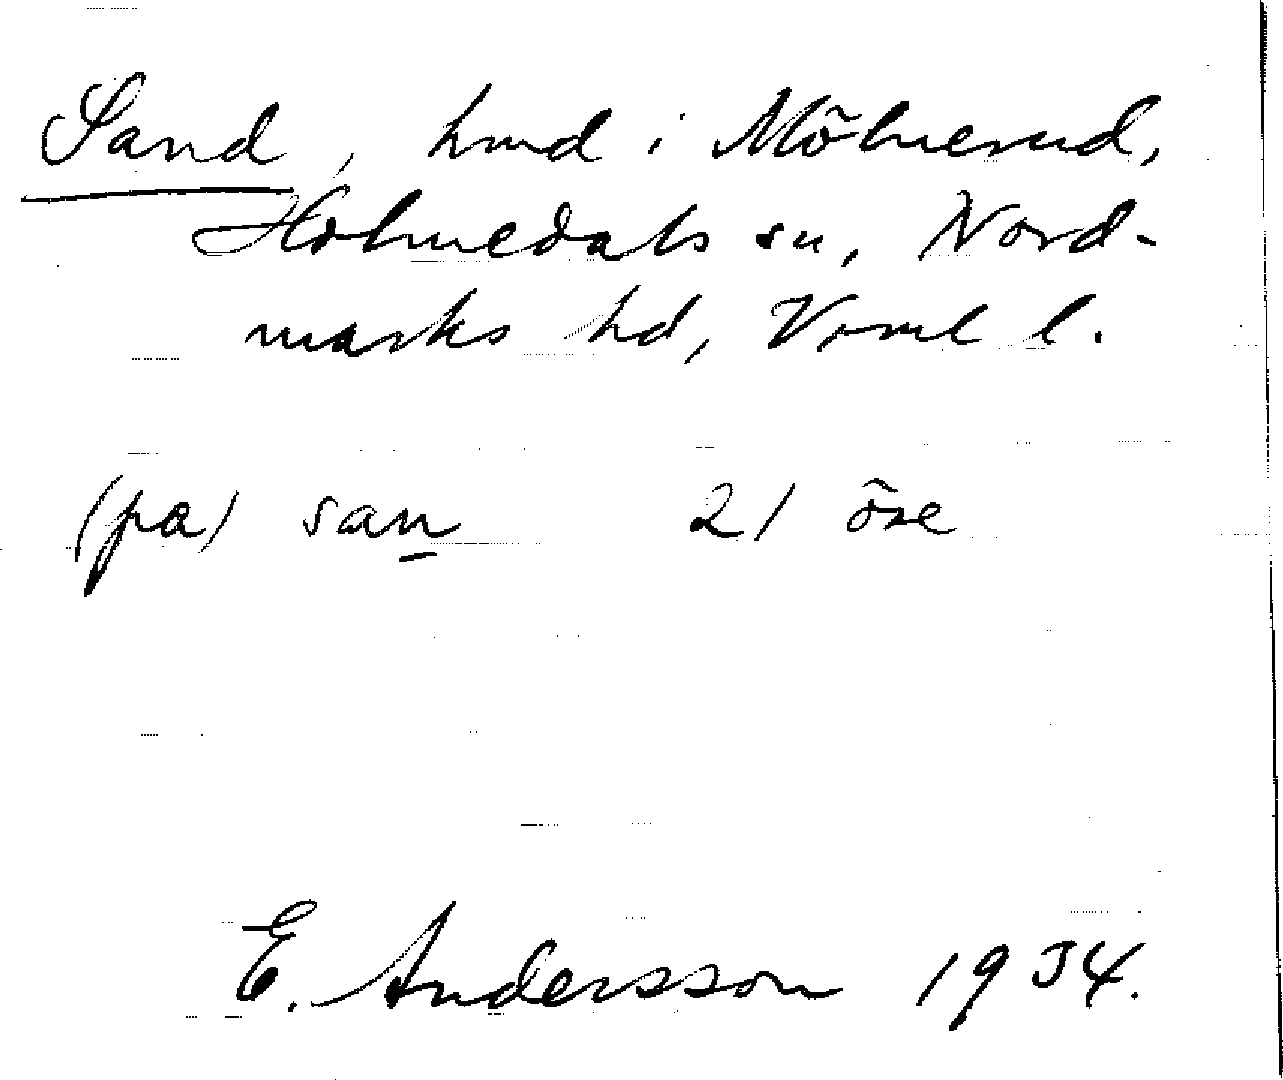 Sand, hmd i Mölnerud,
Holmedals sn, Nord-
marks hd, Vrml l.
(på) san 21 öre
E. Andersson 1934.